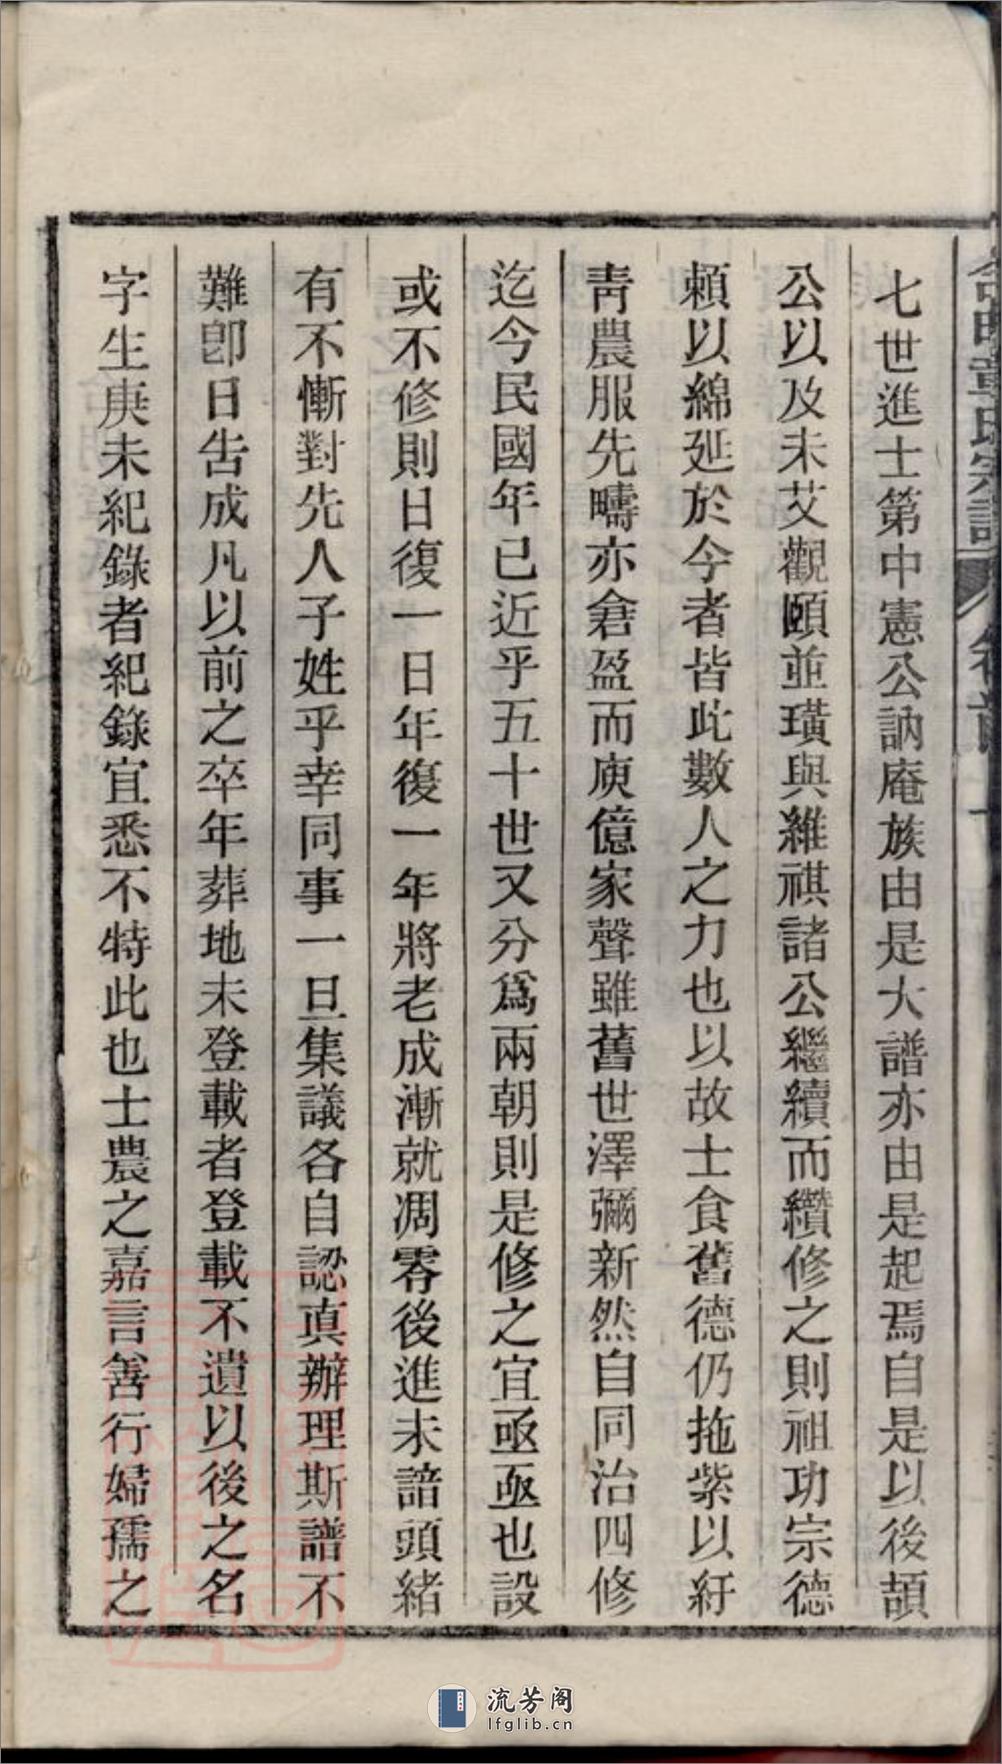 七世進士第中憲公訥庵族由是大譜亦由是起焉自是以後頡
公以及未艾觀頤並璜與維祺諸公繼續而纘修之則祖功宗德
賴以綿延於今者皆此數人之力也以故士食舊德仍拖紫以紆
靑農服先疇亦倉盈而庾億家聲雖舊世澤彌新然自同治四修
迄今民國年已近乎五十世又分爲兩朝則是修之宜亟亟也設
或不修則日復一日年復一年將老成漸就凋零後進未諳頭緒
有不慚對先人子姓乎幸同事一旦集議各自認真辦理斯譜不
難卽日告成凡以前之卒年葬地未登載者登載不遺以後之名
字生庚未紀錄者紀錄宜悉不特此也士農之嘉言善行婦孺之
流芳阁
lfglib.cn